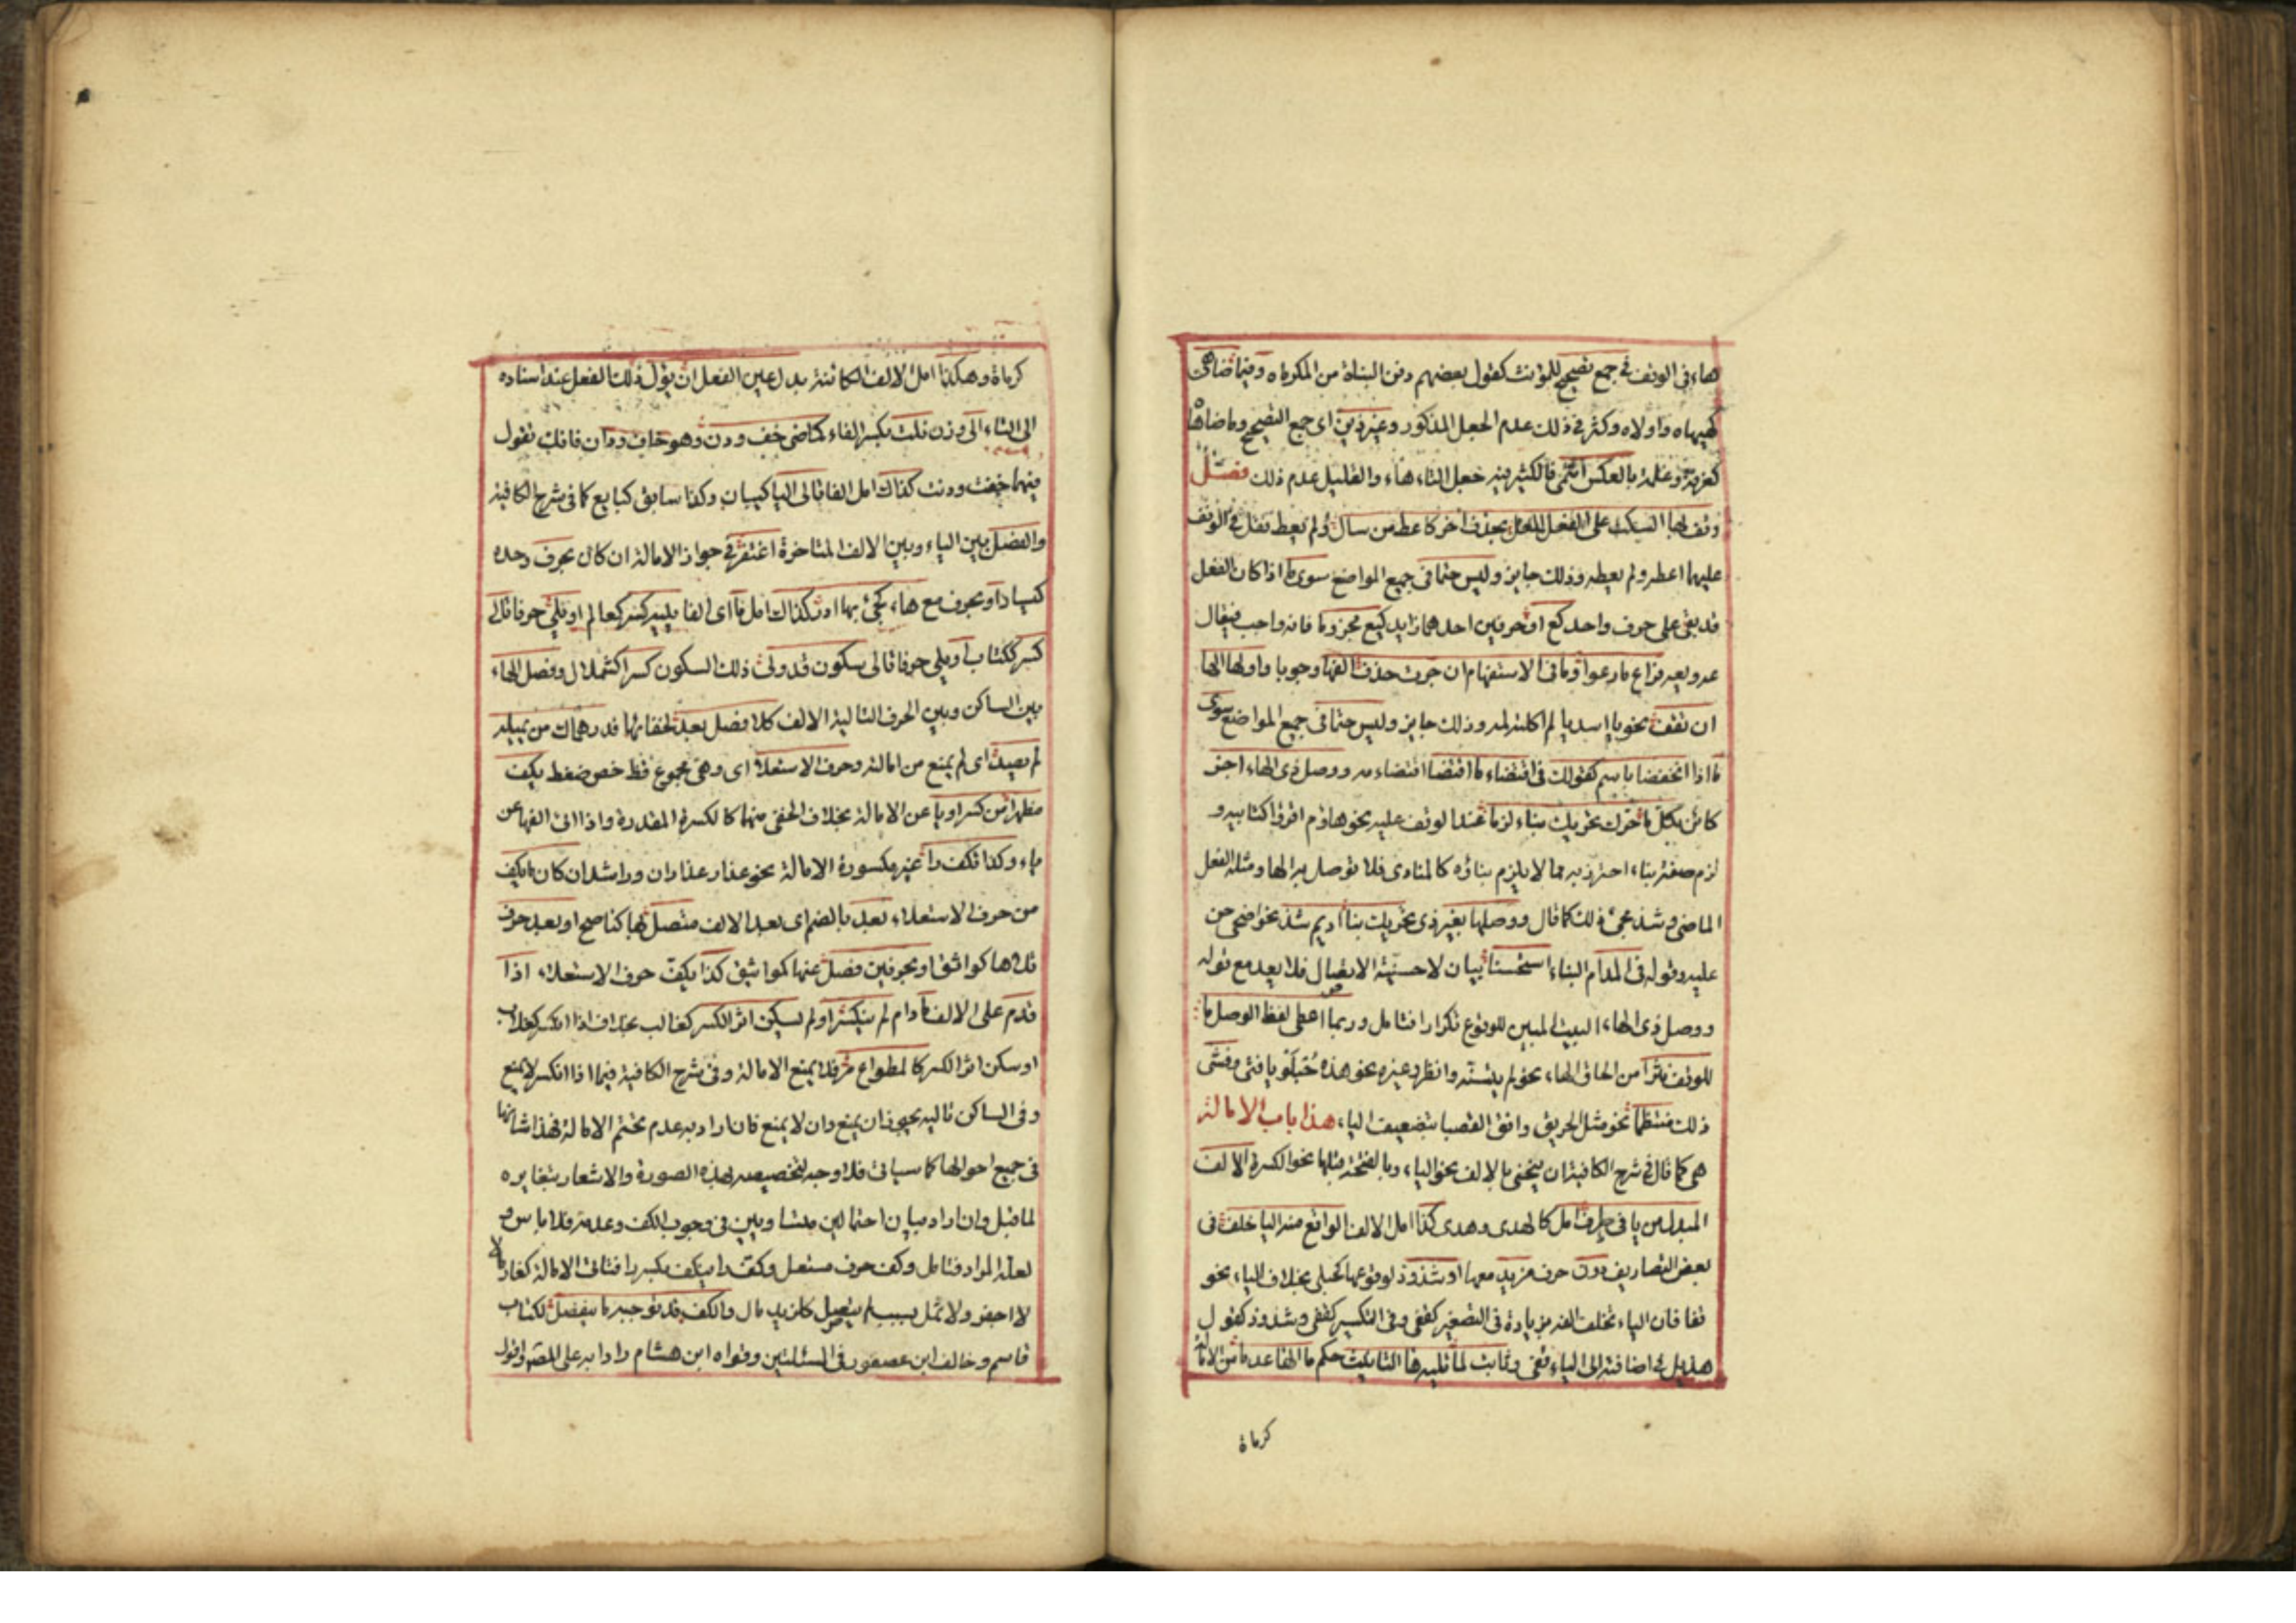 هاء في الوقف في جمع تصحيح للمؤنث كقول بعضهم دفن البناه من المكرماه وفيما ضاهى
كهيهاه واولاه وكثر في ذلك عدم الجعل المذكور وغير ذين اى جمع التصحيح وماضاها
كغرفة وغلمة بالعكس انتمى فالكثير فيه جعل التاء هاء والقليل عدم ذلك فصل
وقف بها السكت على الفعل المعل بحذف اخر كاعط من سال ولم يعط تقل في الوقف
عليهما اعطه ولم يعطه وذلك جايز وليس حتما في جميع المواضع سوى ما اذا كان الفعل
قد بقى على حرف واحد كع او حرفين احدهما زايد كيع مجزوما فانه واجب فيقال
عه ويعه فراع مارعوا وما في الاستفهام ان جرت حذف الفها وجوبا واولها الها
ان تقف نحو يا اسديا لم اكلته لمه وذلك جايز وليس حتما في جميع المواضع سوى
ما اذا انخفضا باسم كقولك في اقتضاء ما اقتضا اقتضاء مه ووصل ذى الهاء اجز
كائن بكل ما حرك تحريك بناء لزما عند الوقف عليه نحو هاؤم اقرؤا كتابيه و
لزم صفة بناء احترز به مما لا يلزم بناؤه كالمنادى فلا توصل به الها ومثله الفعل
الماضى وشذ مجئ ذلك كما قال ووصلها بغير ذى تحريك بنا اديم شذ نحو اضحى من
عليه وقوله في المدام البناء استحسنا بيان لاحسنية الايصال فلا يعد مع قوله
ووصل ذى الهاء البيت المبين للوقوع تكرارا فتامل وربما اعطى لفظ الوصل ما
للوقف نثرا من الحاق الهاء نحو لم يتسنه وانظر وغيره نحو هذه حبلو يا فتى وفشى
ذلك منتظما نحو مثل الحريق وافق القصبا بتضعيف الباء هذا باب الامالة
هى كما قال في شرح الكافية ان ينحى بالالف نحو الياء وبالفتحة قبلها نحو الكسرة الالف
المبدل من يا في طرف امل كالهدى وهدى كذا امل الالف الواقع منه اليا خلف في
بعض التصاريف دون حرف مزيد معها او شذوذ لوقوعها كحبلى بخلاف الياء نحو
قفا فان الياء تخلف الفه بزيادة في التصغير كقفى وفي التكسير كقفى وشذوذ كقول
هذيل في اضافته الى الياء قفى وثابت لما تليه ها التانيث حكم ما الها عدما من الامالة
كرماة
كرماة وهكذا امل الالف الكائنة بدل عين الفعل ان يؤل ذلك الفعل عند اسناده
الى التاء الى وزن فلت بكسر الفاء كماضى خف ودن وهو خاف ودان فانك تقول
فيهما خفت ودنت كذاك امل الفا تالى اليا كبيان وكذا سابق كبايع كما في شرح الكافية
والفصل بين الياء وبين الالف المتاخرة اغتفر في جواز الامالة ان كان بحرف وحده
كيسار او بحرف مع هاء كجئ بها ادر كذاك امل ما اى الفا يليه كسر كعالم او يلى حرفا تالى
كسر ككتاب او يلى حرفا تالى سكون قد ولى ذلك السكون كسرا كشملال وفصل الهاء
بين الساكن وبين الحرف التاليه الالف كلا فصل يعد لخفائها فدرهماك من يميله
لم يصد اى لم يمنع من امالته وحرف الاستعلا اى وهى مجموع قظ خص ضغط يكف
مظهرا من كسر او يا عن الامالة بخلاف الخفى منهما كالكسرة المقدرة واذا الى الفها عن
ياء وكذا تكف را غير مكسورة الامالة نحو عذار عذاران وراشد ان كان ما يكف
من حرف الاستعلاء بعد بالضم اى بعد الالف متصل بها كناصح او بعد حرف
تلاها كواثق او بحرفين فصل عنها كمواثيق كذا يكف حرف الاستعلاء اذا
قدم على الالف ما دام لم ينكسر او لم يسكن اثر الكسر كغالب بخلاف اذا انكسر كغلاب
او سكن اثر الكسر كالمطواع مر فلا يمنع الامالة وفي شرح الكافية فيما اذا انكسر لا يمنع
وفي الساكن تاليه يجوز ان يمنع وان لا يمنع فان اراد به عدم تحتم الامالة فهذا شانها
في جميع احوالها كما سياتى فلا وجه لتخصيصه بهذه الصورة والاشعار بتغايره
لما قبل وان اراد بيان احتمالين متساويين في وجوب الكف وعدمه فلا باس و
لعله المراد فتامل وكف حرف مستعل وكف را ينكف بكسر را فتاتى الامالة كغارما
لا اجفو ولا تمل بسبب لم يتصل كلزيد مال والكف قد يوجبه ما ينفصل لكتاب
قاسم وخالف ابن عصفور في المسئلتين وقواه ابن هشام رادا به على المصر واقول